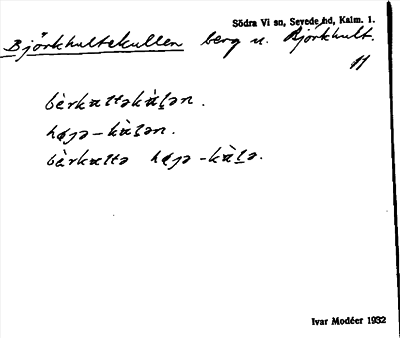 Södra Vi sn, Sevede hd, Kalm. 1.
Björkhultekullen berg u. Björkhult.
11
bèrkattəkàlən.
høgə-kàlən.
bèrkattə høgə-kàlə.
Ivar Modéer 1932